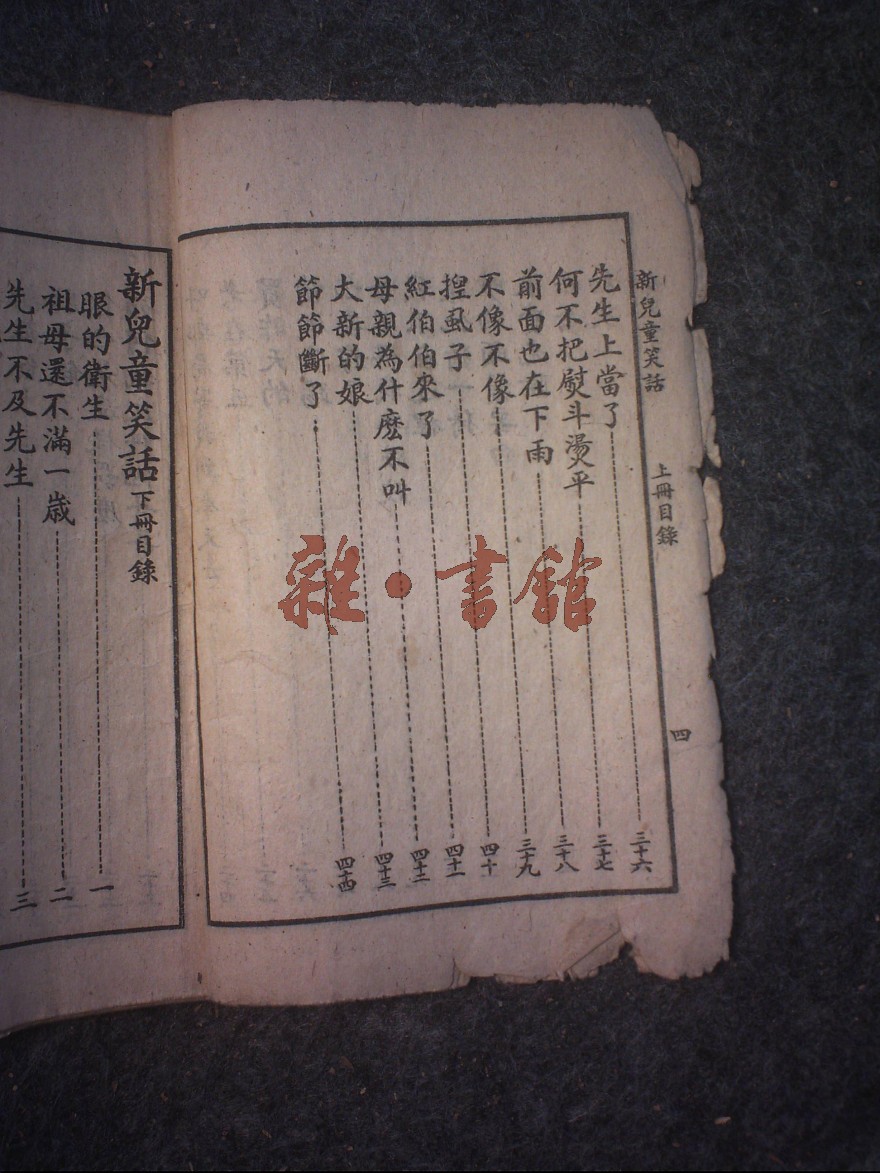 新兒童笑話 上冊目錄 四
先生上當了 三十六
何不把熨斗燙平 三十七
前面也在下雨 三十八
不像不像 三十九
揑虱子 四十
紅伯伯來了 四十一
母親為什麽不叫 四十二
大新的娘 四十三
節節斷了 四十四
新兒童笑話 下冊目錄
眼的衛生 一
祖母還不滿一歲 二
先生不及先生 三
雜·書館